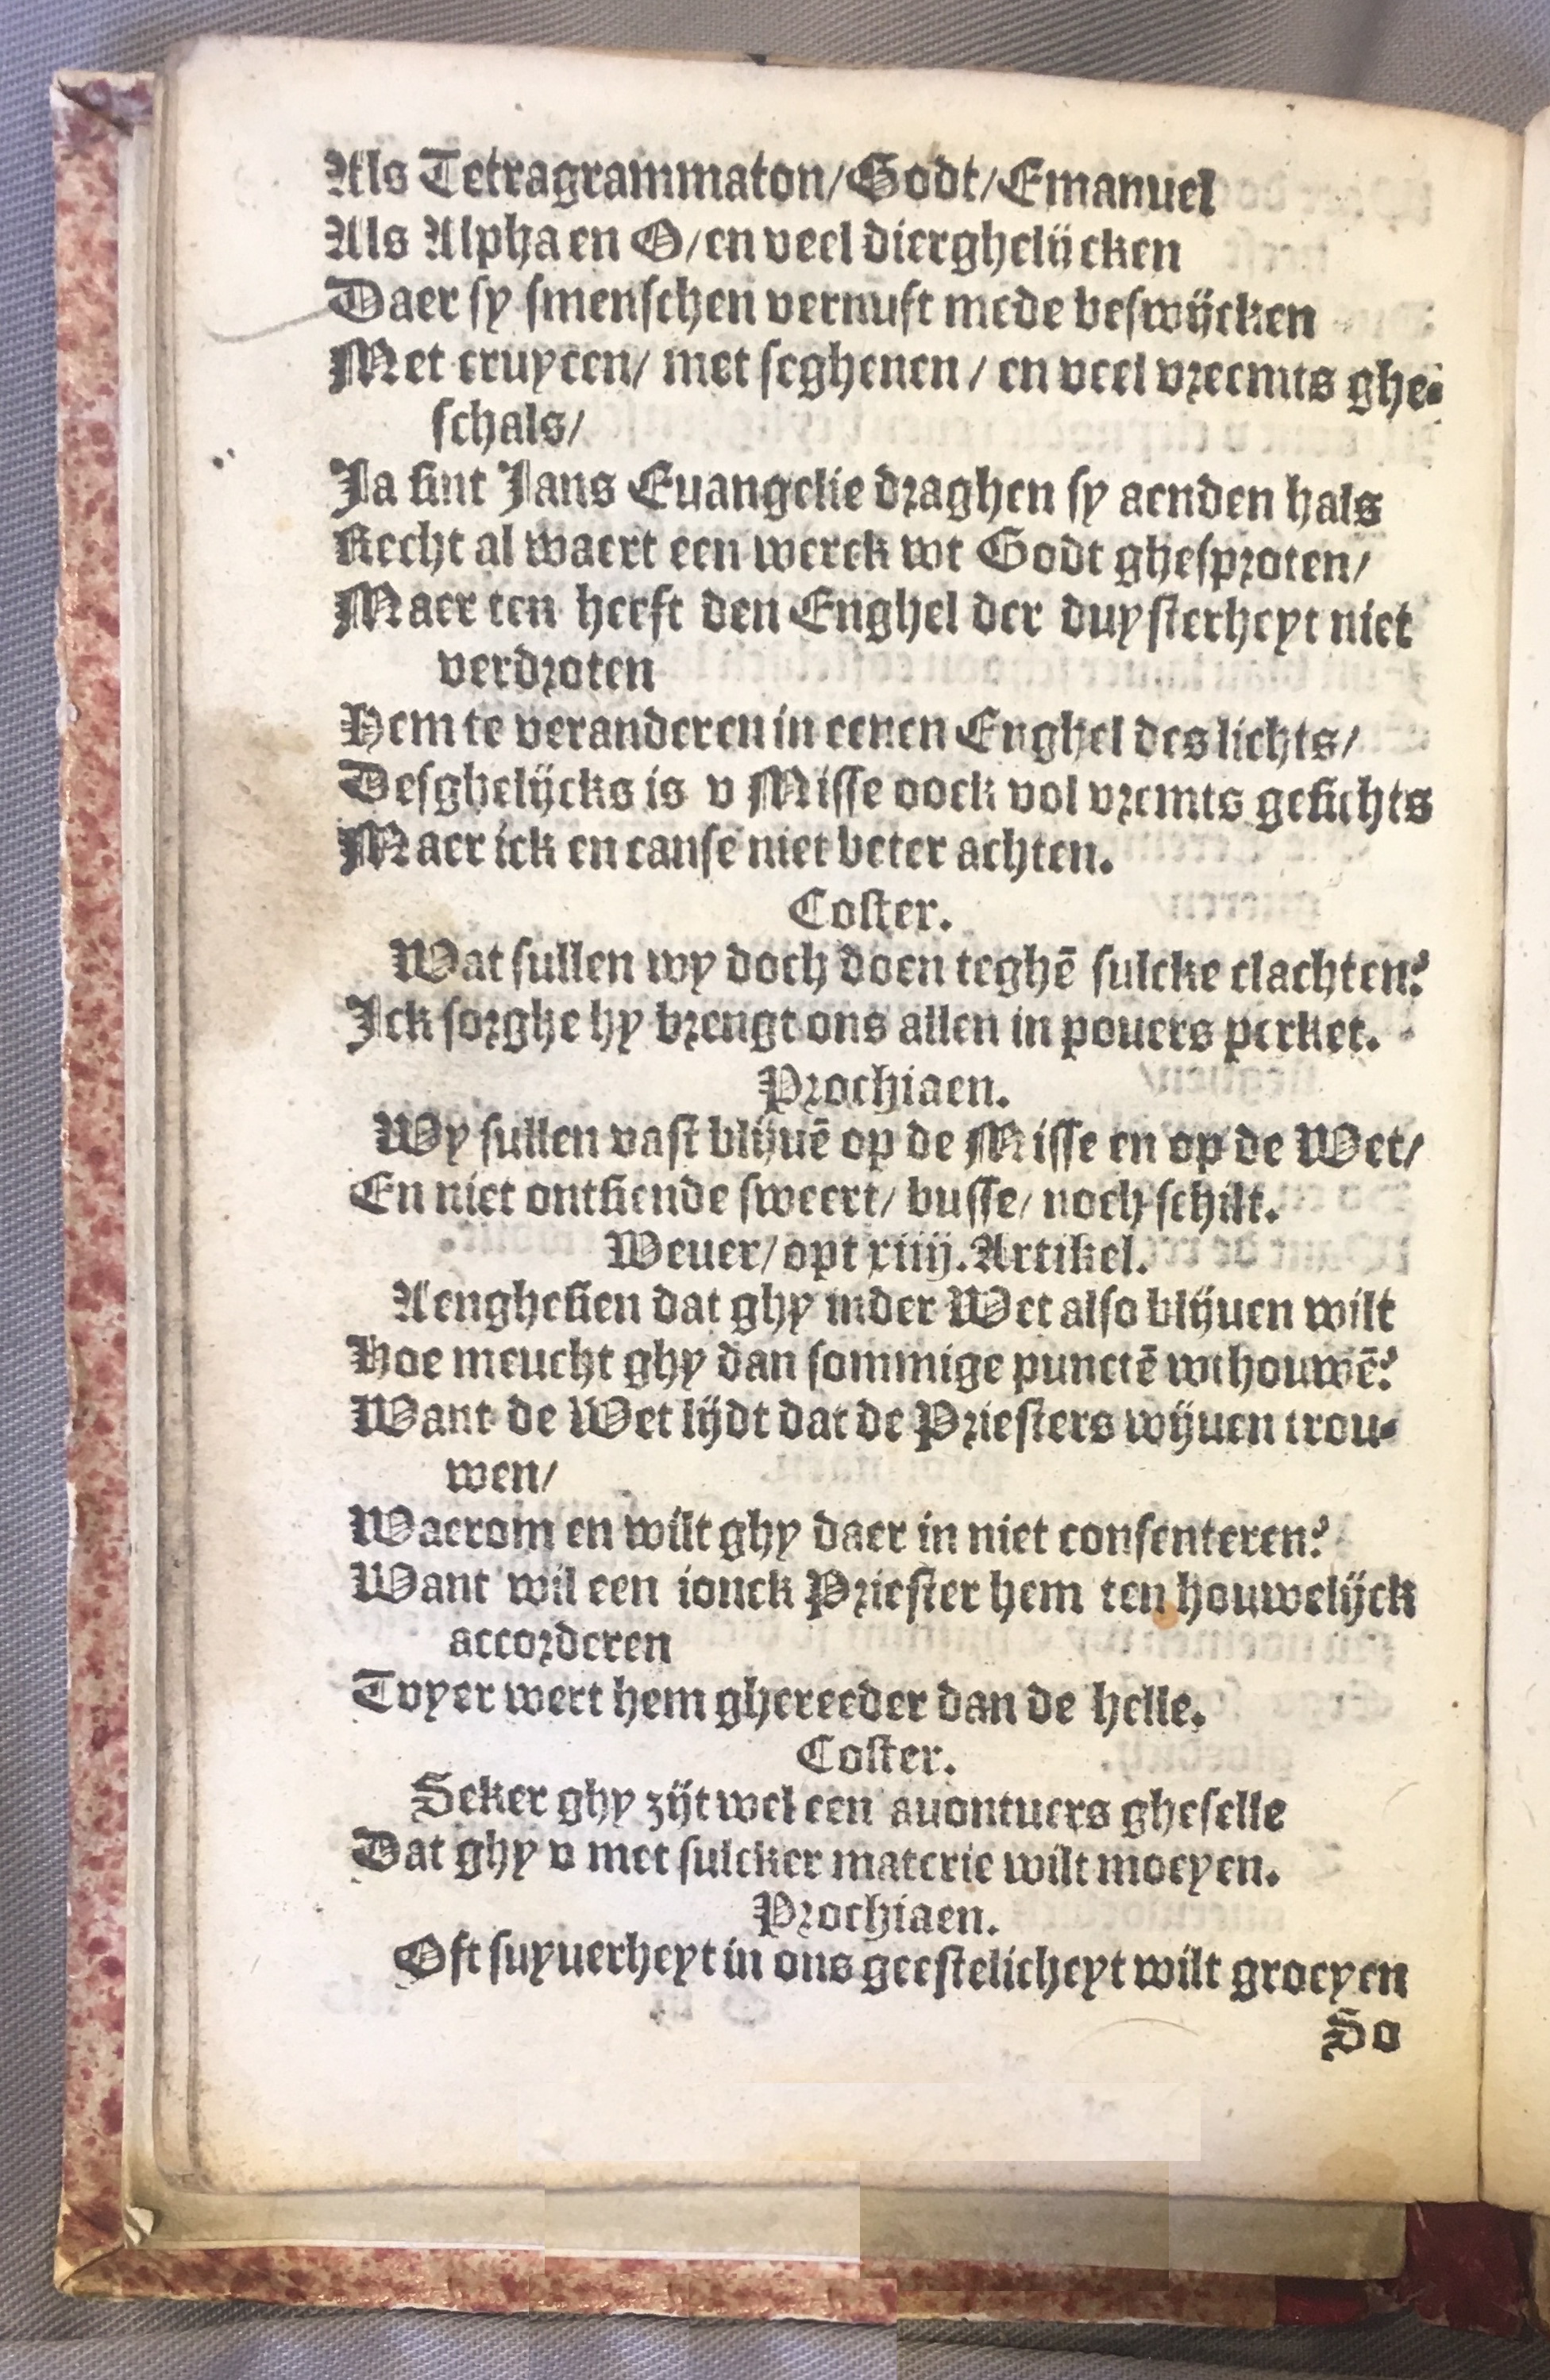 Als Tetragrammaton/Godt/Emanuel
Als Alpha en O/en veel dierghelijcken
Daer sy smenschen vernuft mede beswijcken
Met cruycen/ met seghenen/ en veel vreemts ghe-
schals/
Ja sint Jans Euangelie draghen sy aenden hals
Recht al waert een werck wt Godt ghesproten/
Maer ten heeft den Enghel der duysterheyt niet
verdroten
Hem te veranderen in eenen Enghel des lichts/
Desghelijcks is v Misse oock vol vremts gesichts
Maer ick en canse niet beter achten.
Coster.
Wat sullen wy doch doen teghē sulcke clachten?
Ick sorghe hy brengt ons allen in pouers perket.
Prochiaen.
Wy sullen vast blijuē op de Misse en op de Wet/
En niet ontsiende sweert/ busse/ noch schilt.
Weuer/opt xiiij.Artikel.
Aenghesien dat ghy inder Wet also blijuen wilt
Hoe meucht ghy dan sommige punctē wthouwē?
Want de Wet lijdt dat de Priesters wijuen trou-
wen/
Waerom en wilt ghy daer in niet consenteren?
Want wil een ionck Priester hem ten houwelijck
accorderen
Tvyer wert hem ghereeder dan de helle.
Coster.
Seker ghy zijt wel een auontuers gheselle
Dat ghy v met sulcker materie wilt moeyen.
Prochiaen.
Oft suyuerheyt in ons geestelicheyt wilt groeyen
So